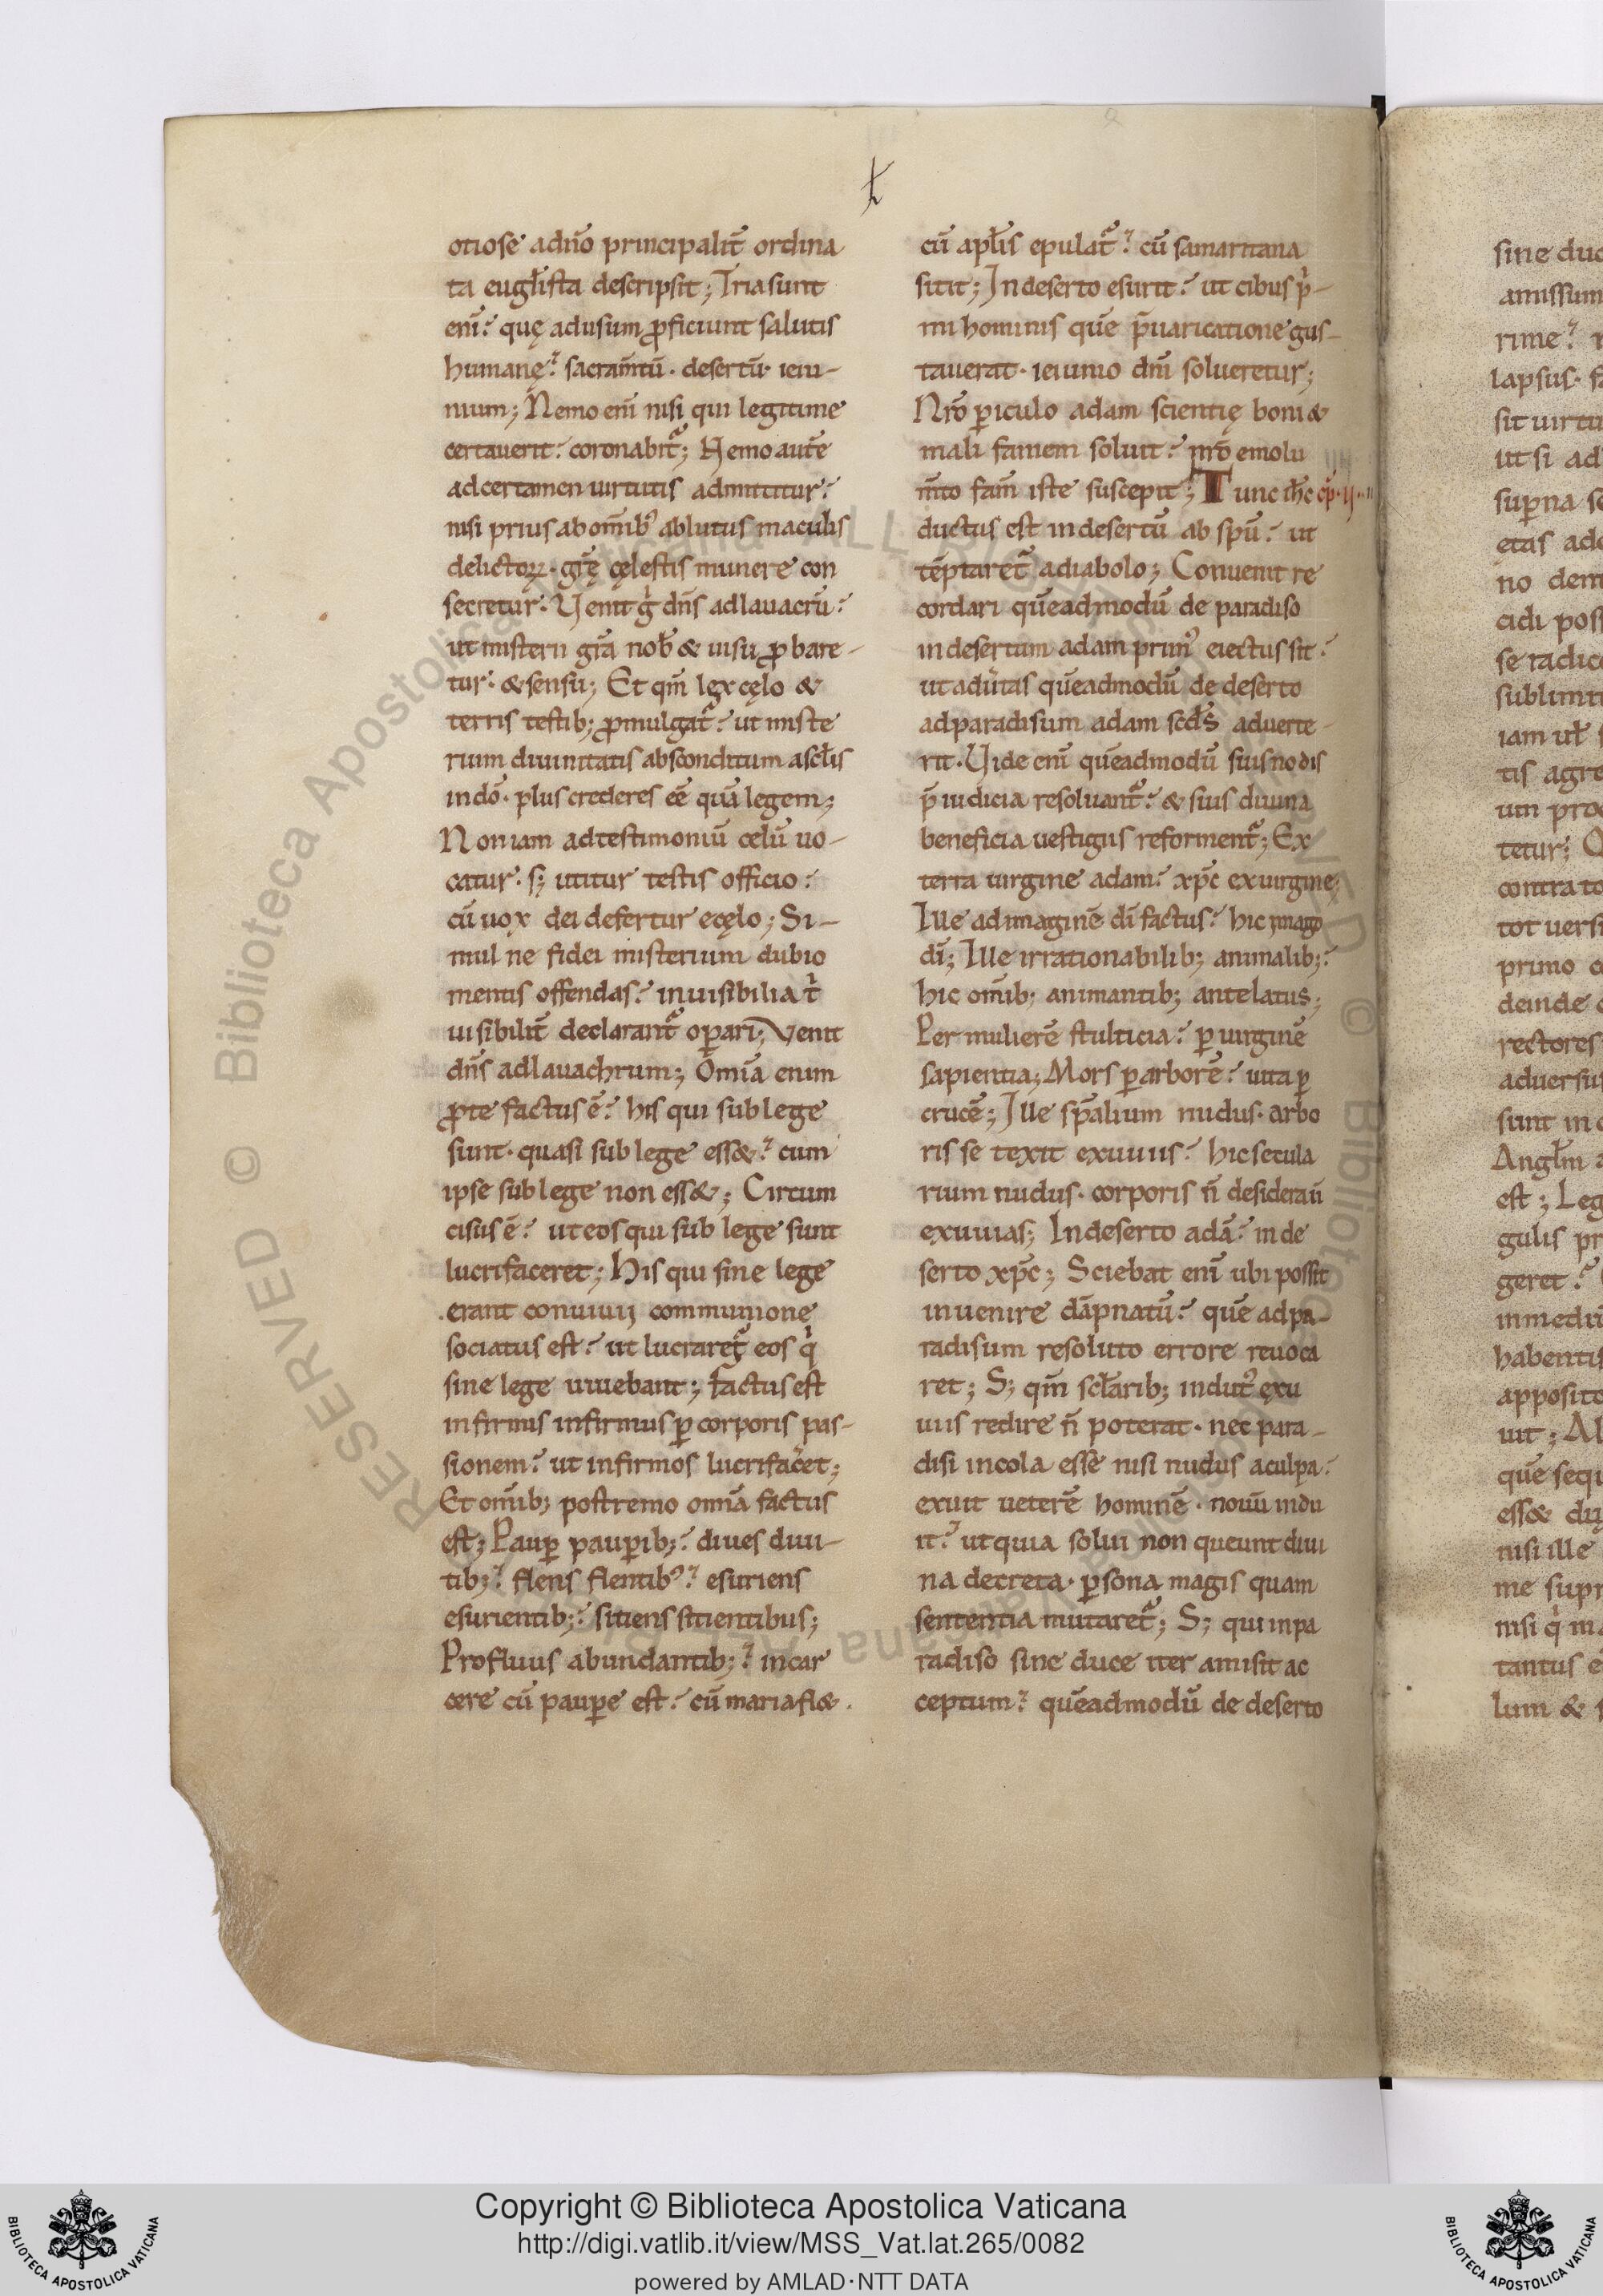 ħ
otiose adn̄o principalit̄ ordina
ta eugl̄ista descripsit; Tria sunt
eni̅? quę adusum ꝓficiunt salutis
humanę? sacram̄tū· desertū· ieiu-
nium; Nemo eni̅ nisi qui legitime
certauerit? coronabit᷑; Nemo aut̄e
adcertamen uirtutis admittitur?
nisi prius abom̄ib; ablutus maculis
delictoꝝ· gr̄ę cęlestis munere con
secretur? Venit g̍ dn̄s adlauacrū?
ut misterii gr̄a nob̄ & uisu ꝓbare-
tur? & sensu; Et qm̄ lex cęlo &
terris testib; ꝓmulgat᷑? ut miste
rium diuinitatis absconditum ascl̄is
indō· plus crederes eē quā legem;
Non iam adtestimoniū celū uo-
catur· s; utitur testis officio?
cū uox dei defertur ecęlo; Si-
mul ne fidei misterium dubio
mentis offendas? inuisibilia t̍
uisibilit̄ declarant᷑ oꝑari; Venit
dn̄s adlauachrum; Omīa enim
ꝓte factus ē? his qui sub lege
sunt· quasi sub lege ess&? cum
ipse sub lege non ess&; Circum
cisus ē? ut eos qui sub lege sunt
lucrifaceret; His qui sine lege
erant conuiuij communione
sociatus est? ut lucraret᷑ eos q̍
sine lege uiuebant; factus est
infirmis infirmus ꝑ corporis pas-
sionem? ut infirmos lucrifac̍et;
Et om̄ib; postremo omīa factus
est; Pauꝑ pauꝑib;? diues diui-
tib;? flens flentib;? esuriens
esurientib;? sitiens sitientibus;
Profluus abundantib;? incar
cere cū pauꝑe est? cū maria fl&.
cū apl̄is epulat᷑? cū samaritana
sitit; In deserto esurit? ut cibus p̍-
mi hominis quē p̄uaricatione gus-
tauerat· ieiunio dn̄i solueretur;
Nr̄o ꝑiculo adam scientię boni &
mali famem soluit? nr̄o emolu
m̄to fam̄ iste suscepit; Tunc ih̄c cp̄·ij
ductus est in desertū ab spū? ut
tēptaret᷑ a diabolo; Conuenit re
cordari quēadmodū de paradiso
in desertum adam prim᷒ eiectus sit?
ut adu̍tas quēadmodū de deserto
adparadisum adam scd̄s aduerte-
rit· Vide eni̅ quēadmodū suis nodis
p̄iudicia resoluant᷑? & suis diuina
beneficia uestigiis reforment᷑; Ex
terra uirgine adam? xp̄c ex uirgine;
Ille ad imaginē dī factus? hic imago
dī; Ille irrationabilib; animalib;?
hic om̄ib; animantib; antelatus;
Per mulierē stulticia? ꝑ uirginē
sapientia; Mors ꝑ arborē? uita ꝑ
crucē; Ille sp̄alium nudus· arbo
ris se texit exuuiis? hic secula
rium nudus· corporis n̄ desiderauı̄
exuuias; In deserto adā? in de
serto xp̄c; Sciebat eni̅ ubi possit
inuenire dāpnatū? quē ad pa-
radisum resoluto errore reuoca
ret; S; qm̄ scl̄arib; indut᷒ exu
uiis redire n̄ poterat· nec para-
disi incola esse nisi nudus a culpa?
exuit ueterē hominē· nouū indu
it? ut quia solui non queunt diui
na decreta· ꝑsona magis quam
sententia mutaret᷑; S; qui in pa
radiso sine duce iter amisit ac
ceptum? quēadmodū de deserto
Copyright © Biblioteca Apostolica Vaticana
http://digi.vatlib.it/view/MSS_Vat.lat.265/0082
powered by AMLAD·NTT DATA